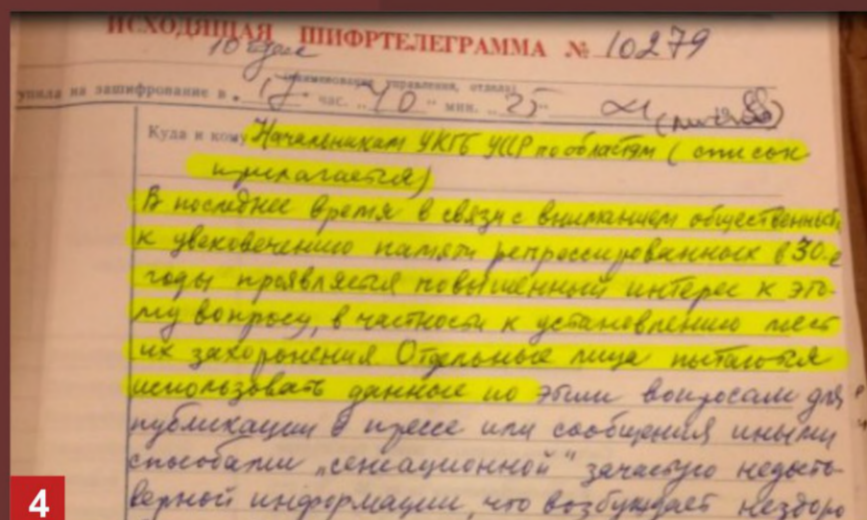 ИСХОДЯЩАЯ ШИФРТЕЛЕГРАММА № 10279
10 отдел
наименование управления, отдела
упила на зашифрование в „17“ час. „10“ мин. „25“
Куда и кому Начальникам УКГБ УССР по областям (список
прилагается)
В последнее время в связи с вниманием общественный
к увековечению памяти репрессированных в 30-е
годы проявляется повышенный интерес к это-
му вопросу, в частности к установлению мест
их захоронения Отдельные лица пытаются
использовать данные по этим вопросам для
публикации в прессе или сообщения иными
способами „сенсационной“ зачастую недосто-
верной информации, что возбуждает нездоро
4